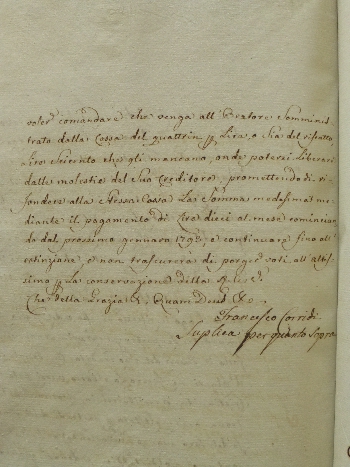 voler comandare che venga all' Oratore Sommini
trato dalla Cassa del quattrin p Lira, o sia del rifiuto
Lire Seicento che gli mancano, onde potersi liberare
dalle molestie del Suo Creditore, promettendo di ri
fondere alla stessa Cassa La Somma medesima me
diante il pagamento di Lire dieci al mese comincian
do dal prossimo gennaro 1793, e continuare fino all'
estinzione, e non trascurerà di porger voti all' altis
simo p la conservazione della
Che della Grazia &. Quam Deus &.
Francesco Corridi
Suplica per quanto Sopra